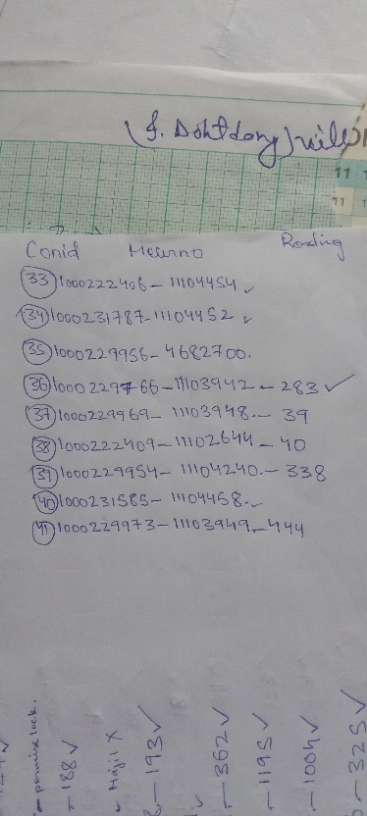 Conid Meterno Reading
33 1000222406 - 11104454 ✓
34 1000231787 - 11104452 ✓
35 1000229956 - 4682700.
36 1000229766 - 11103942 - 283 ✓
37 1000229969 - 11103948. - 39
38 1000222409 - 11102644 - 40
39 1000229954 - 11104240. - 338
40 1000231585 - 11104458. -
41 1000229973 - 11103949 - 444
- 188 ✓
Hajil X
- 193 ✓
- 362 ✓
- 1195 ✓
- 1004 ✓
- 325 ✓